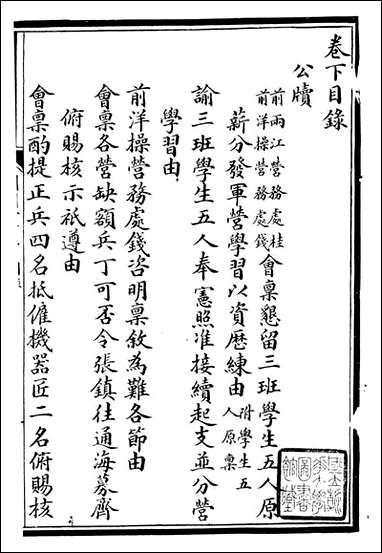 卷下目錄
公牘
前兩江營務處桂
前洋操營務處錢
會稟懇留三班學生五人原
薪分發軍營學習以資歷練由
附學生五
人原稟
諭三班學生五人奉憲照准接續起支並分營
學習由
前洋操營務處錢咨明稟敘為難各節由
會稟各營缺額兵丁可否令張鎮往通海募齊
俯賜核示祇遵由
會稟酌提正兵四名抵僱機器匠二名俯賜核